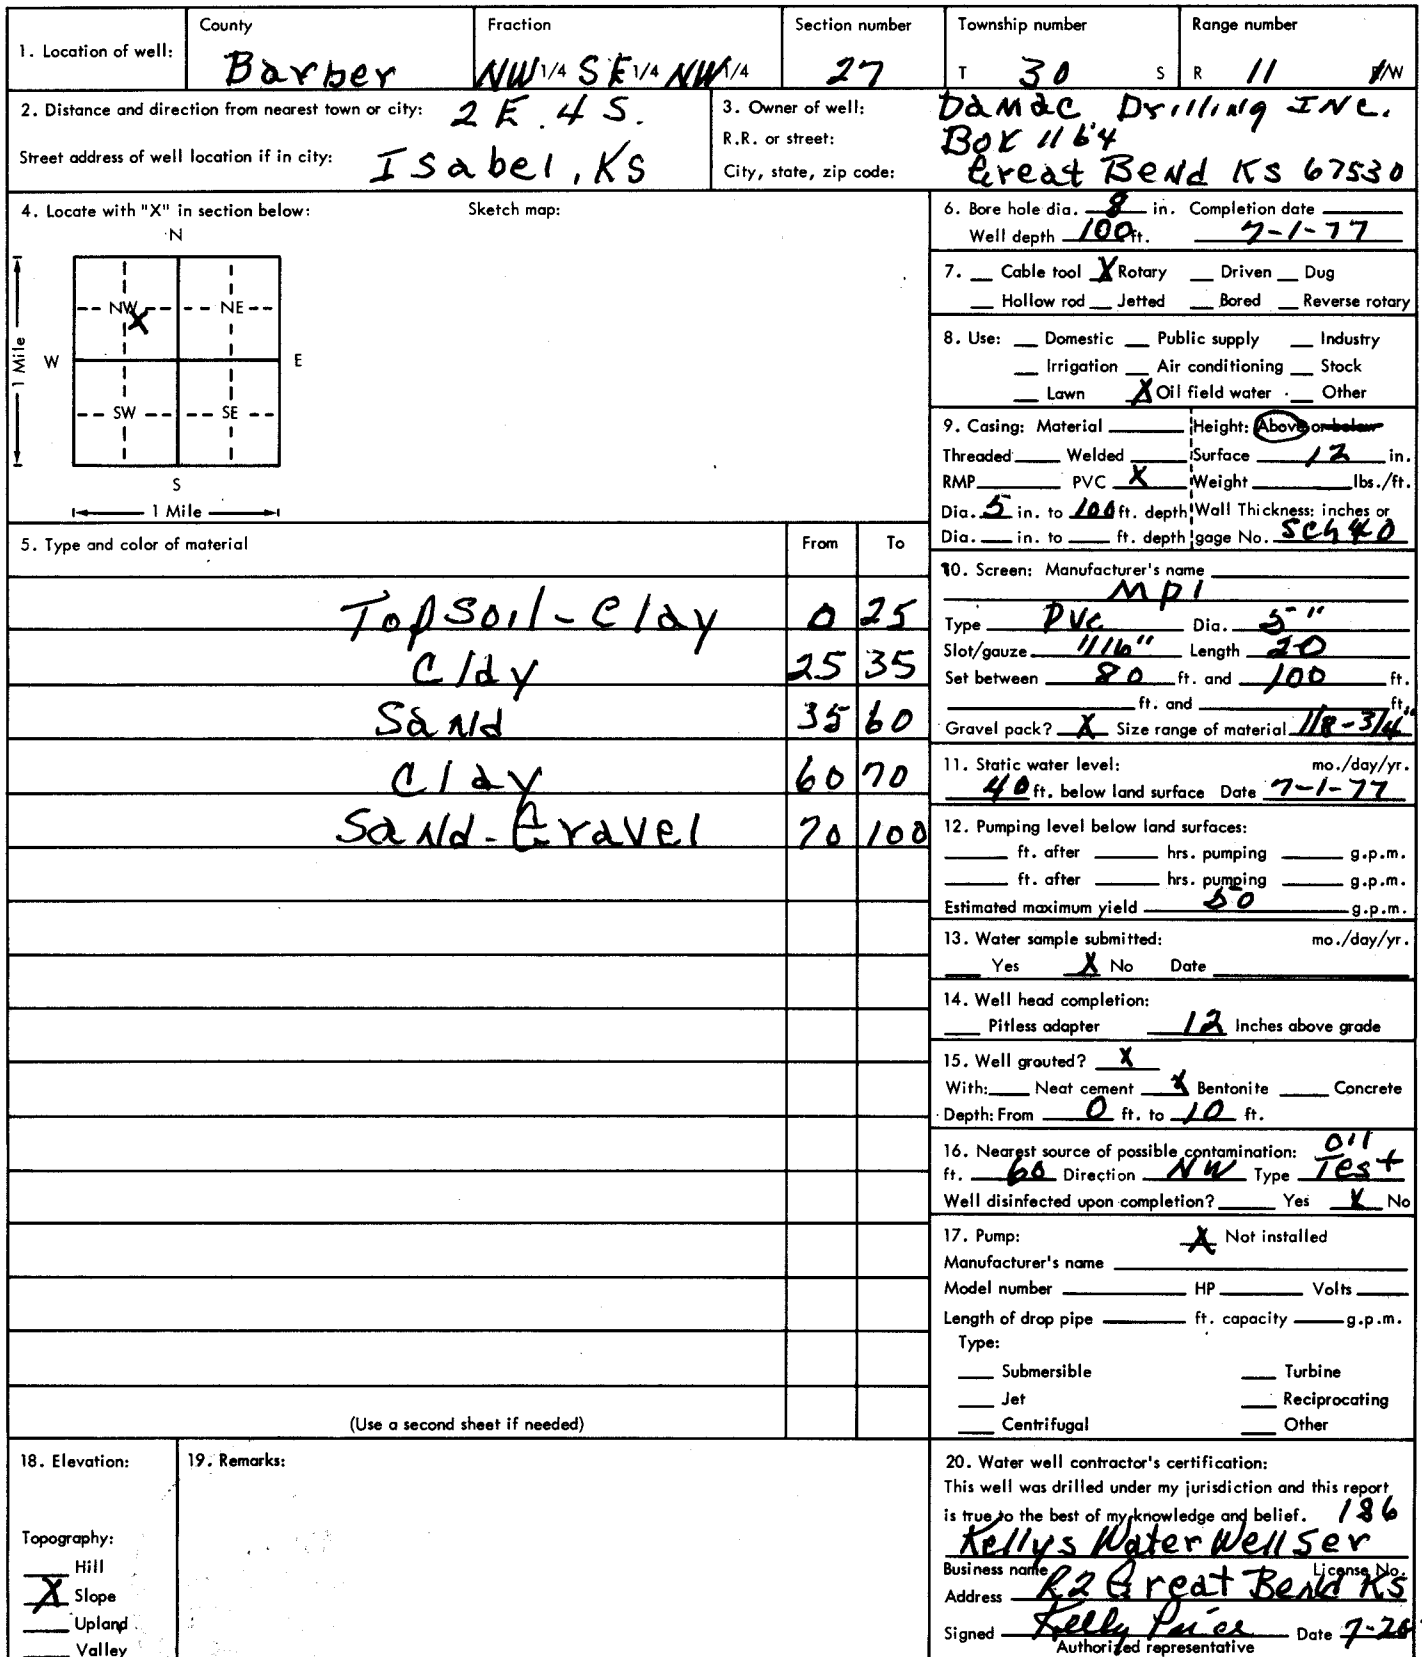 1. Location of well: County Barber Fraction NW 1/4 SE 1/4 NW 1/4 Section number 27 Township number T 30 S Range number R 11 E/W
2. Distance and direction from nearest town or city: 2 E. 4 S.
Street address of well location if in city: Isabel, KS
3. Owner of well: Damac Drilling INC.
R.R. or street: Box 1164
City, state, zip code: Great Bend KS 67530
4. Locate with "X" in section below: Sketch map:
N
NW NE
X
W E
1 Mile
SW SE
S
1 Mile
5. Type and color of material From To
Topsoil - Clay 0 25
Clay 25 35
Sand 35 60
Clay 60 70
Sand - Gravel 70 100
(Use a second sheet if needed)
6. Bore hole dia. 8 in. Completion date
Well depth 100 ft. 7-1-77
7. Cable tool X Rotary Driven Dug
Hollow rod Jetted Bored Reverse rotary
8. Use: Domestic Public supply Industry
Irrigation Air conditioning Stock
Lawn X Oil field water Other
9. Casing: Material Height: Above or below
Threaded Welded Surface 12 in.
RMP PVC X Weight lbs./ft.
Dia. 5 in. to 100 ft. depth Wall Thickness: inches or
Dia. in. to ft. depth gage No. Sch 40
10. Screen: Manufacturer's name
MPI
Type PVC Dia. 5"
Slot/gauze 1/16" Length 20
Set between 80 ft. and 100 ft.
ft. and ft.
Gravel pack? X Size range of material 1/8-3/4"
11. Static water level: mo./day/yr.
40 ft. below land surface Date 7-1-77
12. Pumping level below land surfaces:
ft. after hrs. pumping g.p.m.
ft. after hrs. pumping g.p.m.
Estimated maximum yield 50 g.p.m.
13. Water sample submitted: mo./day/yr.
Yes X No Date
14. Well head completion:
Pitless adapter 12 Inches above grade
15. Well grouted? X
With: Neat cement X Bentonite Concrete
Depth: From 0 ft. to 10 ft.
16. Nearest source of possible contamination: oil
ft. 60 Direction NW Type Test
Well disinfected upon completion? Yes X No
17. Pump: X Not installed
Manufacturer's name
Model number HP Volts
Length of drop pipe ft. capacity g.p.m.
Type:
Submersible Turbine
Jet Reciprocating
Centrifugal Other
18. Elevation:
Topography:
Hill
X Slope
Upland
Valley
19. Remarks:
20. Water well contractor's certification:
This well was drilled under my jurisdiction and this report
is true to the best of my knowledge and belief. 186
Kellys Water Well Ser
Business name License No.
Address R2 Great Bend KS
Signed Kelly Price Date 7-20
Authorized representative